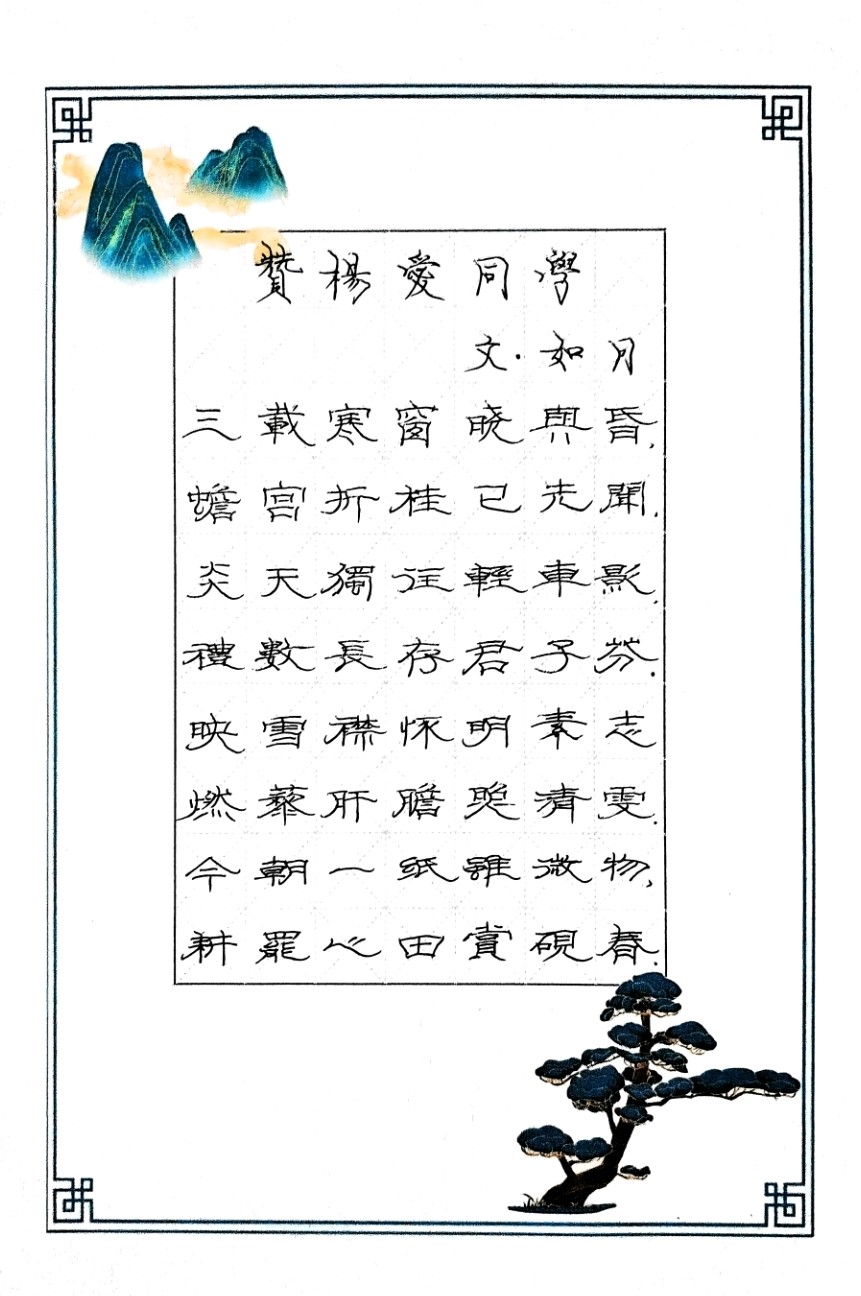 贊楊愛同學
文·如月
三載寒窗曉與昏,
蟾宮折桂已先聞.
炎天獨往輕車影.
禮數長存君子芬.
映雪襟怀明素志
燃藜肝膽照清雯.
今朝一紙雖微物,
耕罷心田賞硯春.